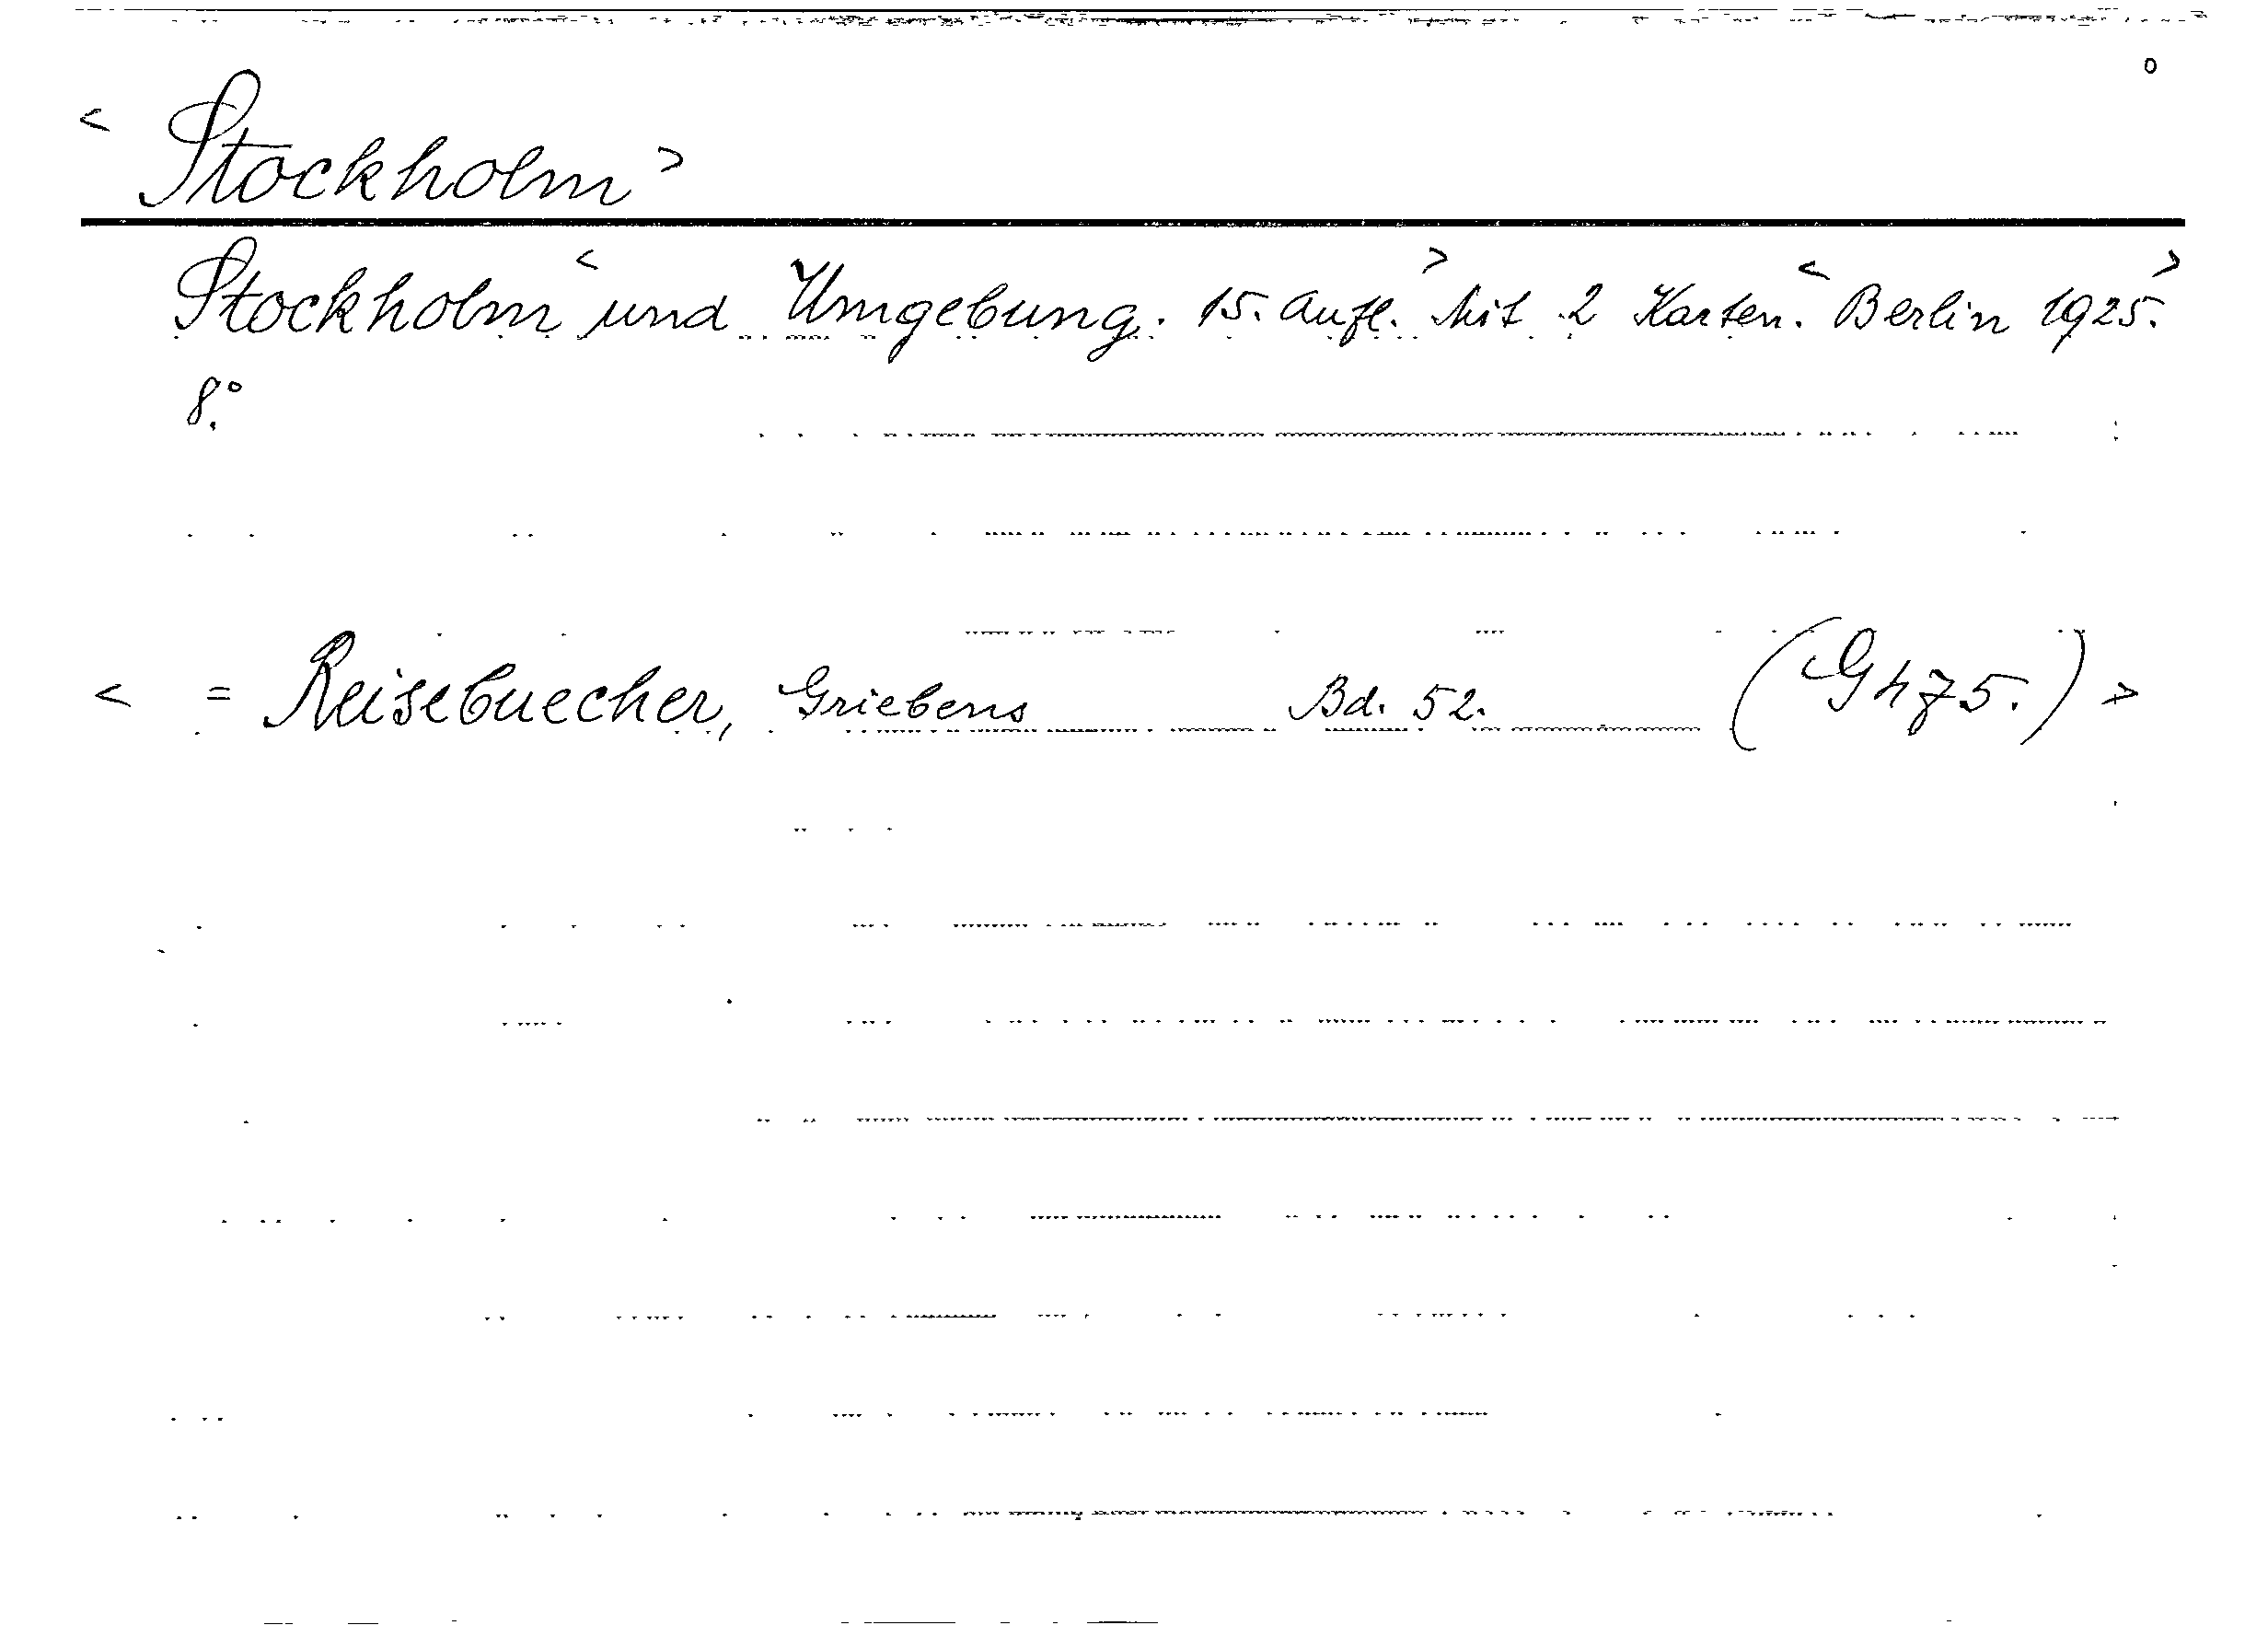 < Stockholm >
Stockholm < und Umgebung. 15. Aufl. > Mit 2 Karten. < Berlin 1925. >
8°.
< = Reisebuecher, Griebens Bd. 52. (Gh 75.) >